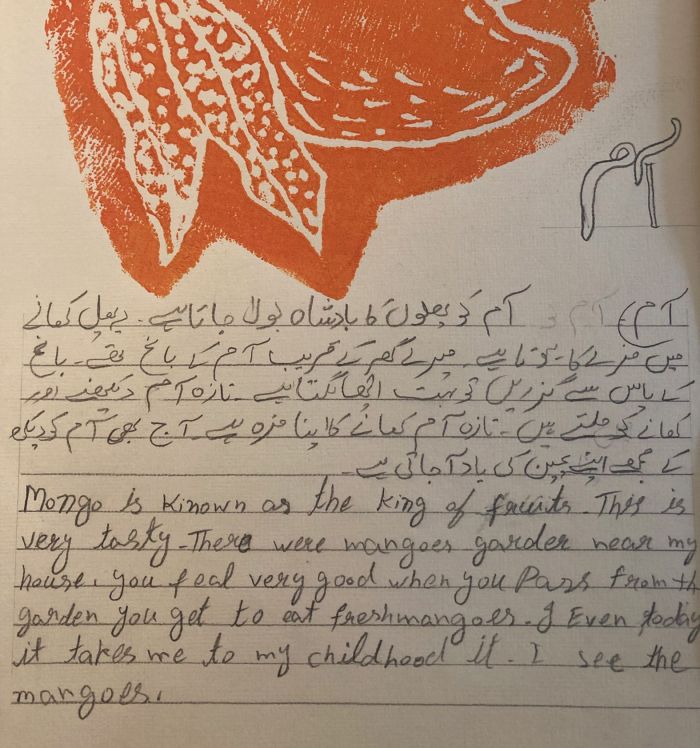 آم
آم) آم کو پھلوں کا بادشاہ بولا جاتا ہے۔ یہ پھل کھانے
میں مزے کا ہوتا ہے۔ میرے گھر کے قریب آم کے باغ تھے۔ باغ
کے پاس سے گزریں تو بہت اچھا لگتا ہے۔ تازہ آم دیکھنے اور
کھانے کو ملتے ہیں۔ تازہ آم کھانے کا اپنا مزہ ہے۔ آج بھی آم کو دیکھ
کے مجھے اپنے بچپن کی یاد آ جاتی ہے۔
Mongo is kinown as the king of fruits. This is
very tasty. There were mangoes garder near my
house. you feal very good when you Pass from th
garden you get to eat freshmangoes. I Even today
it takes me to my childhood it. I see the
mangoes.